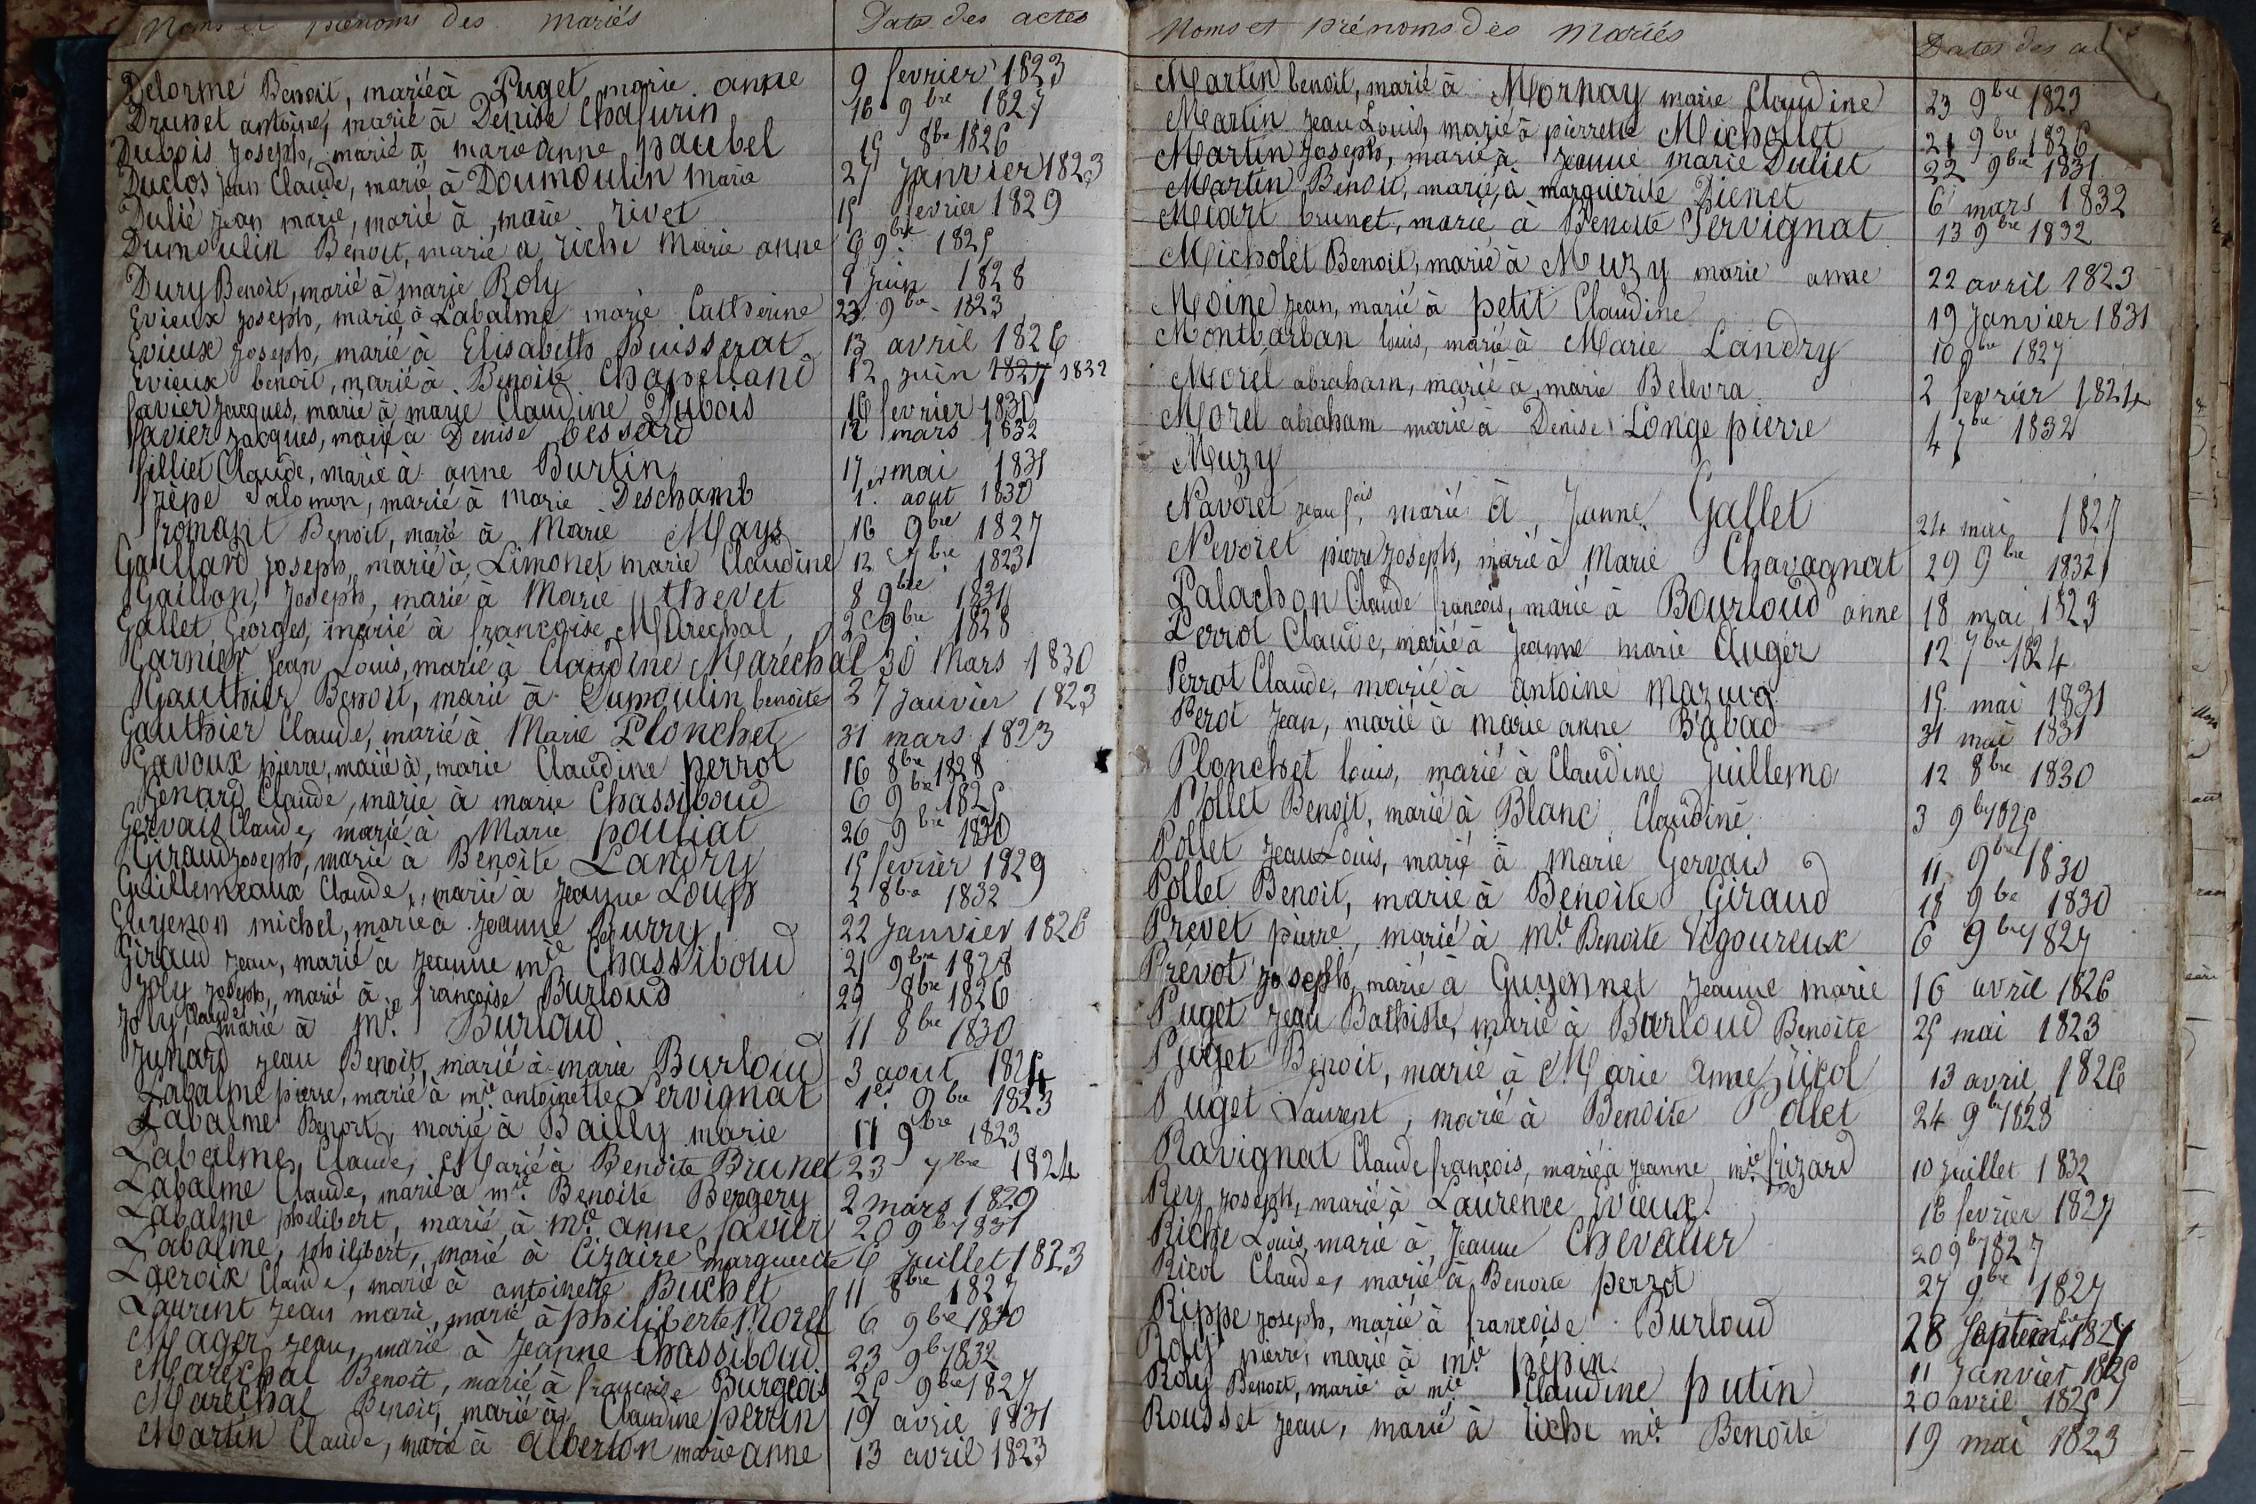 Noms et prénoms des mariés Date des actes
Delorme Benoit, marié à Puget marie anne 9 fevrier 1823
Drunet antoine, marié à Denise Chafurin 16 9bre 1827
Dubois Joseph, marié à marie anne paubel 15 8bre 1826
Duclos Jean Claude, marié à Doumoulin marie 27 Janvier 1823
Dulié Jean marie, marié à marie rivet 15 fevrier 1829
Dumoulin Benoit, marié a riche Marie anne 6 9bre 1825
Dury Benoit, marié à marie Roly 8 Juin 1828
Evieux Joseph, marié à Labalme marie Catherine 23 9bre 1823
Evieux Joseph, marié à Elisabeth Buisserat 13 avril 1826
Evieux benoit, marié à Benoite Chapelland 12 Juin 1827 1832
favier Jacques, marié à marie Claudine Dubois 16 fevrier 1830
favier Jacques, marié à Denise Cessard 12 mars 1832
filliet Claude, marié à anne Burtin 17 mai 1831
frèpe Salomon, marié à marie Deschamb 1er aout 1830
fromant Benoit, marié à Marie Mays 16 9bre 1827
Gaillard Joseph, marié à Limonet marie Claudine 12 7bre 1823
Gaillon, Joseph, marié à Marie thevet 8 9bre 1831
Gallet Georges, marié à françoise Marechal 9bre 1828
Garnier Jean Louis, marié à Claudine Marechal 30 Mars 1830
Gauthier Benoit, marié à Dumoulin benoite 27 Janvier 1823
Gauthier Claude, marié à Marie Plonchet 31 mars 1823
Gavoux pierre, marié à, marie Claudine perrot 16 8bre 1828
Genard Claude, marié à marie Chassiboud 6 9bre 1825
Gervais Claude, marié à Marie pouliat 26 9bre 1830
Giraud Joseph, marié à Benoite Landry 15 fevrier 1829
Guillemeaux Claude, marié à Jeanne Loup 2 8bre 1832
Guyenon michel, marié à Jeanne Burry 22 Janvier 1826
Giraud Jean, marié à Jeanne mie Chassiboud 21 9bre 1828
Joly Joseph, marié à françoise Burloud 29 8bre 1826
Joly Claude marié à mie Burloud 11 8bre 1830
Junard Jean Benoit, marié à marie Burloud 3 aout 1824
Labalme pierre, marié à mie antoinette Servignat 1er 9bre 1823
Labalme Benoit, marié à Bailly marie 11 9bre 1823
Labalme, Claude, Marié à Benoite Brunet 23 7bre 1824
Labalme Claude, marié a mie Benoite Bergery 2 mars 1829
Labalme philibert, marié à mie anne favier 20 9bre 1831
Labalme, philibert, marié à Cizaire marguerite 6 Juillet 1823
Lacroix Claude, marié à antoinette Buchet 11 8bre 1827
Laurent Jean marie, marié à philiberte Morel 6 9bre 1830
Mager Jean, marié à Jeanne Chassiboud 23 9bre 1832
Marechal Benoît, marié à françoise Burgeois 25 9bre 1827
Marechal Benoit, marié à Claudine perrin 19 avril 1831
Martin Claude, marié à alberton marie anne 13 avril 1823
Noms et prénoms des Mariés Dates des ac
Martin benoit, marié à Mornay marie Claudine 23 9bre 1823
Martin Jean Louis, marié à pierrette Michollet 21 9bre 1826
Martin Joseph, marié à Jeanne marie Duliet 22 9bre 1831
Martin Benoit, marié, à marguerite Dienet 6 mars 1832
Méart brunet, marié à Benoite Servignat 13 9bre 1832
Micholet Benoit, marié à Muzy marie anne 22 avril 1823
Moine Jean, marié à petit Claudine 19 Janvier 1831
Montbarban louis, marié à Marie Landry 10 9bre 1827
Morel abraham, marié à marie Belevra 2 fevrier 1824
Morel abraham marié à Denise Longe pierre 4 7bre 1832
Muzy
Navoret Jean fois, marié à, Jeanne Gallet 24 mai 1827
Nevoret pierre Joseph, marié à Marie Chavagnat 29 9bre 1832
Palachon Claude françois, marié à Bourloud anne 18 mai 1823
Perrot Claude, marié à Jeanne marie Auger 12 7bre 1824
Perrot Claude, marié à antoine Mazuca 15 mai 1831
Perot Jean, marié à marie anne Babad 31 mai 1831
Plonchet louis, marié à Claudine Guillemo 12 8bre 1830
Pollet Benoit, marié à Blanc Claudine 3 9bre 1825
Pollet Jean Louis, marié à marie Gervais 11 9bre 1830
Pollet Benoit, marié à Benoite Giraud 18 9bre 1830
Prevet pierre, marié à mie Benoite Vigoureux 6 9bre 1827
Prevot Joseph, marié à Guyennet Jeanne marie 16 avril 1826
Puget Jean Bathiste, marié à Burloud Benoite 25 mai 1823
Puget Benoit, marié à Marie anne Ricol 13 avril 1826
Puget Laurent, marié à Benoite Pollet 24 9bre 1828
Ravignat Claude françois, marié à Jeanne mie frizard 10 Juillet 1832
Rey Joseph, marié à Laurence Evieux 16 fevrier 1827
Riche Louis, marié à Jeanne Chevalier 20 9bre 1827
Ricol Claude, marié à Benoite perrot 27 9bre 1827
Rippe Joseph, marié à françoise Burloud 28 Septembre 1824
Roly pierre, marié à mie pépin 11 Janvier 1825
Roly Benoit, marié à mie Claudine putin 20 avril 1825
Rousset Jean, marié à riche mie Benoite 19 mai 1823